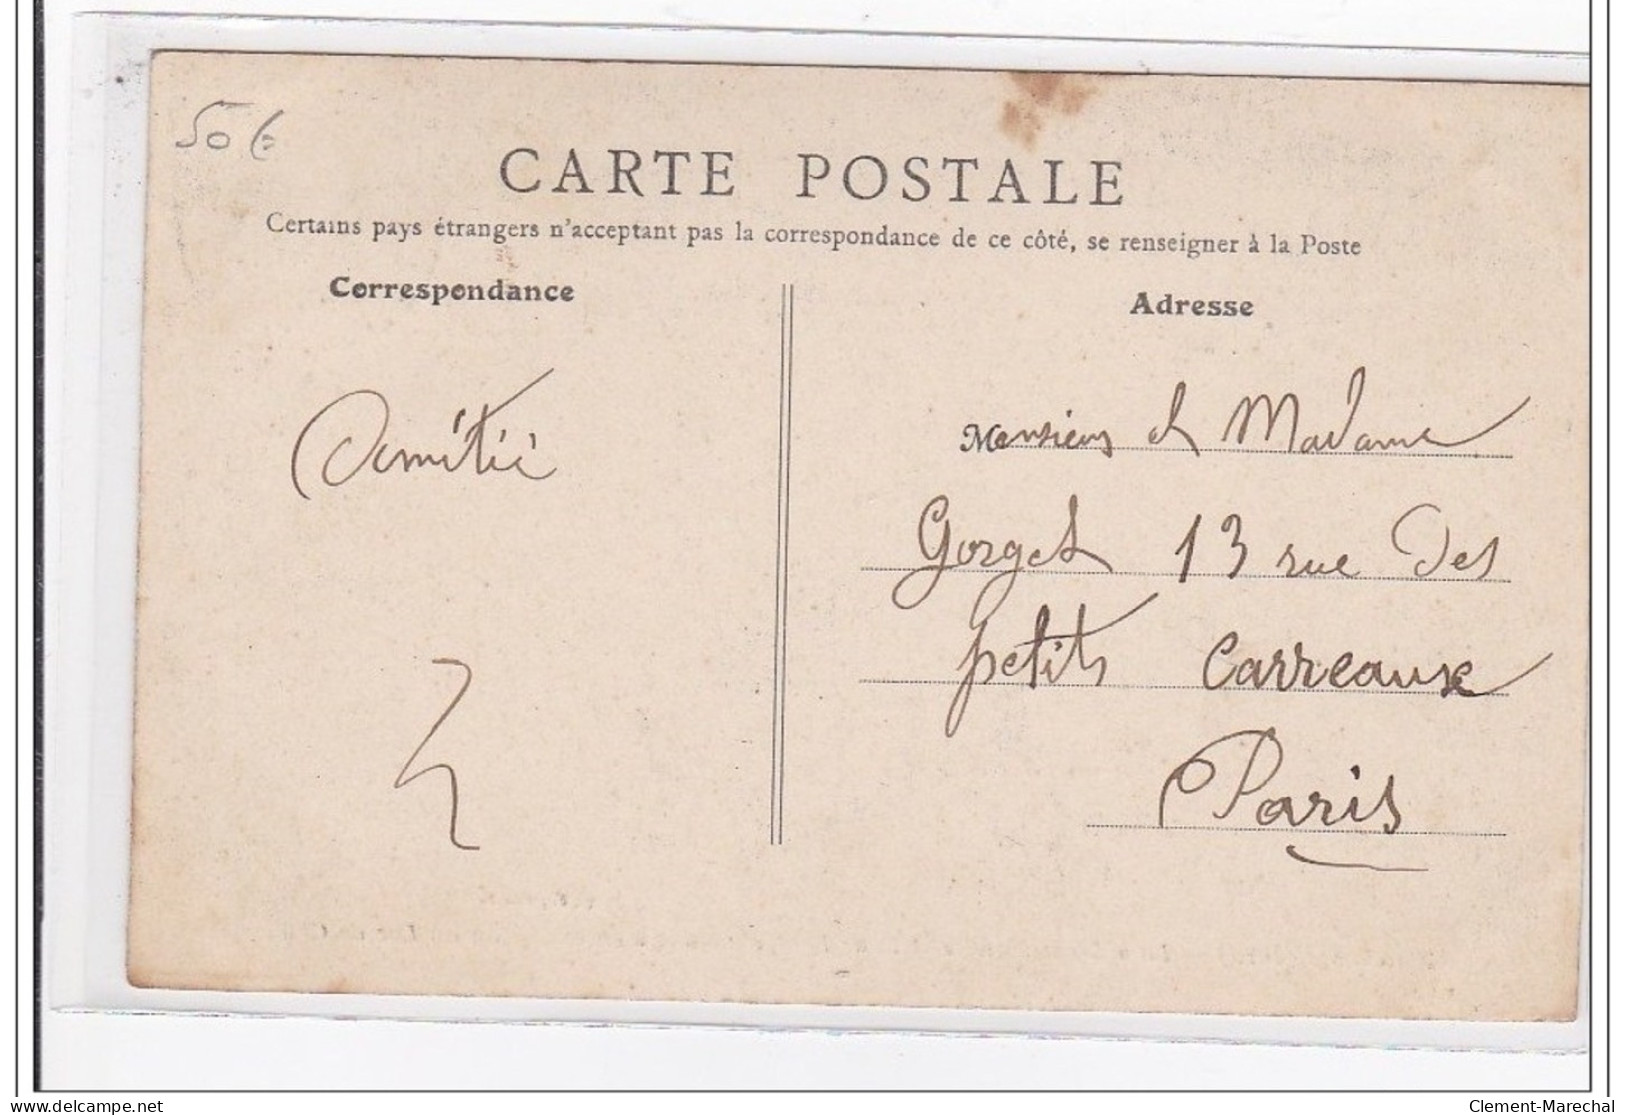 50 €
CARTE POSTALE
Certains pays étrangers n'acceptant pas la correspondance de ce côté, se renseigner à la Poste
Correspondance
Adresse
Amitié
Monsieur et Madame
Gorget 13 rue des
petits Carreaux
Paris
delcampe.net
Clement-Marechal